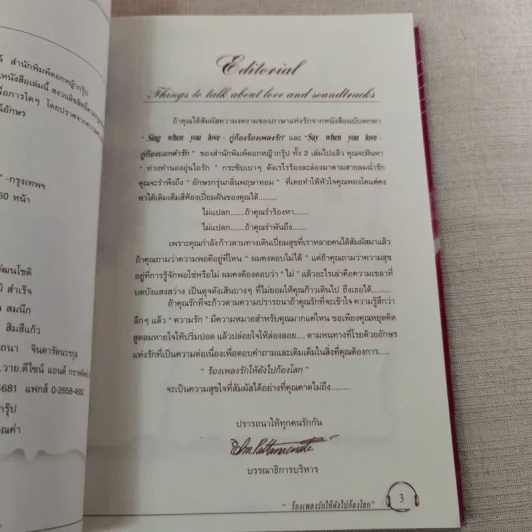 ์ สำนักพิมพ์ดอกหญ้ากรุ๊ป
-กรุงเทพฯ
60 หน้า
ัฒนโชติ
สำเร็จ
สมนึก
สิมสีแก้ว
จินดารัตนวรกุล
.วาย.ดีไซน์ แอนด์
4681 แฟกส์ 0-2658-4682
กรุ๊ป
คุณค่า
Editorial
Things to talk about love and soundtracks
ถ้าคุณได้สัมผัสความงดงามของภาษาแห่งรักจากหนังสือฉบับพกพา
" Sing when you love - กู่ก้องร้องเพลงรัก" และ "Say when you love -
กู่ก้องบอกคำรัก " ของสำนักพิมพ์ดอกหญ้ากรุ๊ป ทั้ง 2 เล่มไปแล้ว คุณจะฝันหา
" ท่วงทำนองอุ่นไอรัก " กระซิบเบาๆ ดังเรไรร้องละล่องมาตามสายลมฉ่ำรัก
คุณจะรำพึงถึง " อักษรกรุ่นกลิ่นพฤกษาหอม " ที่เคยทำให้หัวใจคุณพองโตแต่คง
หาได้เติมเต็มสีห้องเปี่ยมฝันของคุณได้........
ไม่แปลก......ถ้าคุณร่ำร้องหา......
ไม่แปลก......ถ้าคุณรำพันถึง......
เพราะคุณกำลังก้าวตามทางเดินเปี่ยมสุขที่เราหลายคนได้สัมผัสมาแล้ว
ถ้าคุณถามว่าความพอดีอยู่ที่ไหน " ผมคงตอบไม่ได้ " แต่ถ้าคุณถามว่าความสุข
อยู่ที่การรู้จักพอใช่หรือไม่ ผมคงต้องตอบว่า " ไม่ " แล้วอะไรเล่าคือความเขลาที่
บดบังแสงสว่าง เป็นดุจดังเส้นบางๆ ที่ไม่ยอมให้คุณก้าวเดินไป ถึงเธอได้........
ถ้าคุณรักที่จะก้าวตามความปรารถนาถ้าคุณรักที่จะเข้าใจ ความรู้สึกว่า
ลึกๆ แล้ว " ความรัก " มีความหมายสำหรับคุณมากแค่ไหน ขอเพียงคุณหยุดคิด
สูดลมหายใจให้ปริ่มปอด แล้วปล่อยใจให้ล่องลอย.... ตามหนทางที่โรยด้วยอักษร
แห่งรักที่เป็นความต่อเนื่องเพื่อตอบคำถามและเติมเต็มในสิ่งที่คุณต้องการ.....
" ร้องเพลงรักให้ดังไปก้องโลก "
จะเป็นความสุขใจที่สัมผัสได้อย่างที่คุณคาดไม่ถึง........
ปรารถนาให้ทุกคนรักกัน
บรรณาธิการบริหาร
" ร้องเพลงรักให้ดังไปก้องโลก "
3